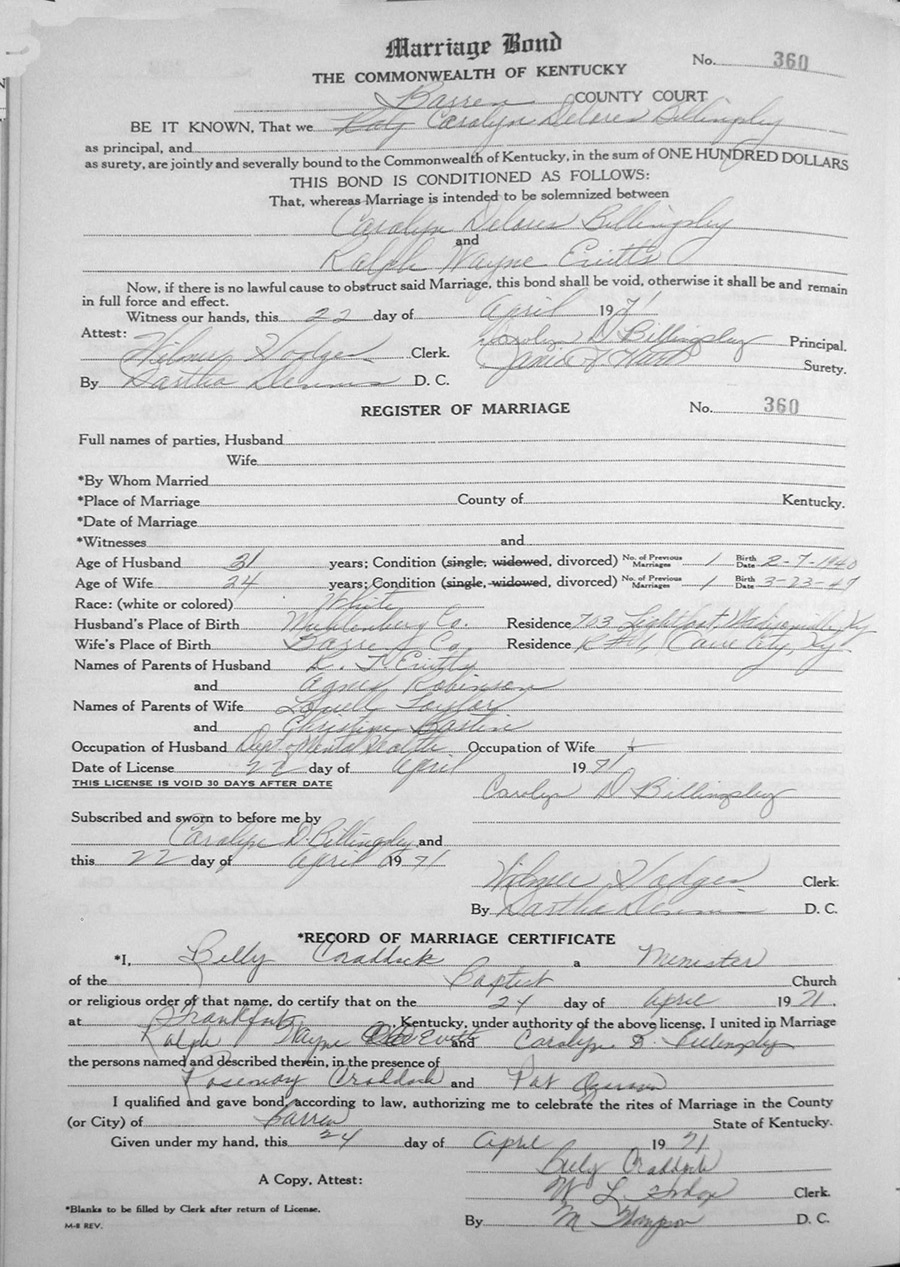 Marriage Bond
No. 360
THE COMMONWEALTH OF KENTUCKY
Barren COUNTY COURT
BE IT KNOWN, That we Carolyn Delores Billingsley
as principal, and
as surety, are jointly and severally bound to the Commonwealth of Kentucky, in the sum of ONE HUNDRED DOLLARS
THIS BOND IS CONDITIONED AS FOLLOWS:
That, whereas Marriage is intended to be solemnized between
Carolyn Delores Billingsley
and
Ralph Wayne Evitts
Now, if there is no lawful cause to obstruct said Marriage, this bond shall be void, otherwise it shall be and remain
in full force and effect.
Witness our hands, this 22 day of April 1971
Attest: Carolyn D. Billingsley Principal.
Wilmer Hodges Clerk.
Surety.
By Bartha Dennis D. C.
REGISTER OF MARRIAGE No. 360
Full names of parties, Husband
Wife
*By Whom Married
*Place of Marriage County of Kentucky.
*Date of Marriage
*Witnesses and
Age of Husband 31 years; Condition (single, widowed, divorced) No. of Previous Marriages 1 Birth Date 2-7-1940
Age of Wife 24 years; Condition (single, widowed, divorced) No. of Previous Marriages 1 Birth Date 3-23-47
Race: (white or colored) White
Husband's Place of Birth Muhlenberg Co. Residence 703 Madisonville, Ky
Wife's Place of Birth Barren Co. Residence R#1, Cave City, Ky.
Names of Parents of Husband Evitts
and Agnes Robinson
Names of Parents of Wife Lowell Taylor
and Christine Bastin
Occupation of Husband Dept. of Mental Health Occupation of Wife
Date of License 22 day of April 1971
THIS LICENSE IS VOID 30 DAYS AFTER DATE
Carolyn D Billingsley
Subscribed and sworn to before me by
Carolyn D. Billingsley and
this 22 day of April 1971
Wilmer Hodges Clerk.
By Bartha Dennis D. C.
*RECORD OF MARRIAGE CERTIFICATE
*I, Billy Craddock a Minister
of the Baptist Church
or religious order of that name, do certify that on the 24 day of April 1971.
at Frankfort Kentucky, under authority of the above license, I united in Marriage
Ralph Wayne Evitts and Carolyn D. Billingsley
the persons named and described therein, in the presence of
Rosemary Craddock and Pat
I qualified and gave bond, according to law, authorizing me to celebrate the rites of Marriage in the County
(or City) of Barren State of Kentucky.
Given under my hand, this 24 day of April 1971
Billy Craddock
A Copy, Attest:
W L Clerk.
*Blanks to be filled by Clerk after return of License.
By M Thompson D. C.
M-8 REV.